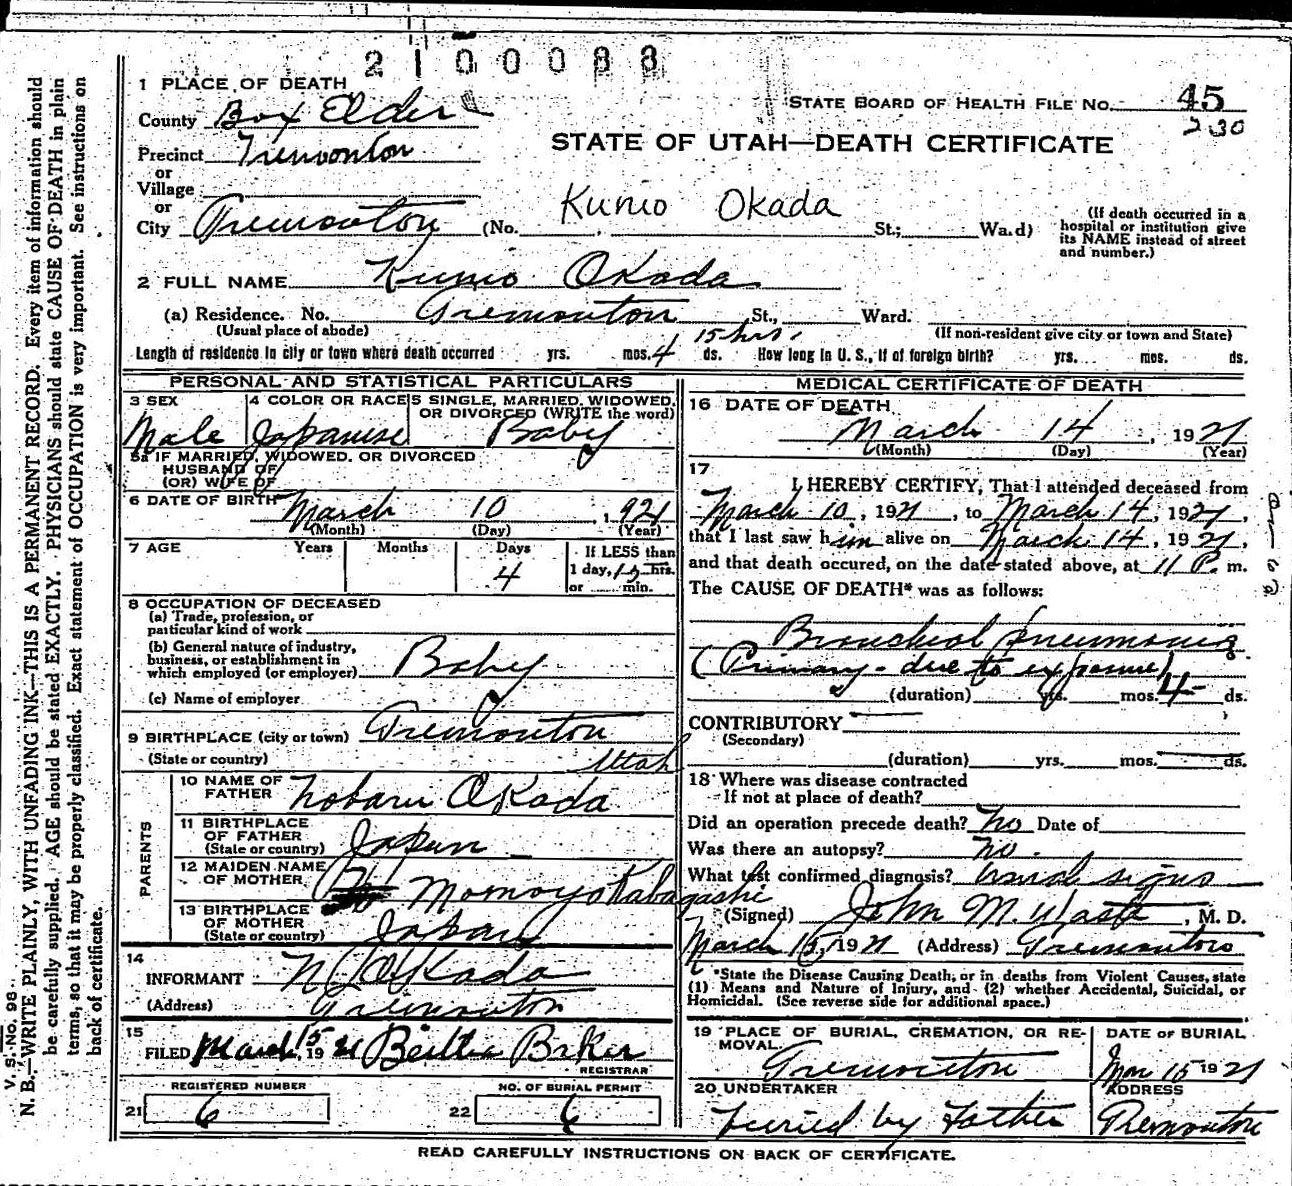 2 1 0 0 0 8 8
1 PLACE OF DEATH
STATE BOARD OF HEALTH FILE No. 45
County Box Elder
230
STATE OF UTAH—DEATH CERTIFICATE
Precinct Tremonton
or
Village
or
Kunio Okada
City Tremonton (No. , St.; Wa.d)
(If death occurred in a hospital or institution give its NAME instead of street and number.)
2 FULL NAME Kunio Okada
(a) Residence. No. Tremonton St., Ward.
(Usual place of abode)
(If non-resident give city or town and State)
15 hrs.
Length of residence in city or town where death occurred yrs. mos. 4 ds. How long in U. S., if of foreign birth? yrs. mos. ds.
PERSONAL AND STATISTICAL PARTICULARS
3 SEX
Male
4 COLOR OR RACE
Japanese
5 SINGLE, MARRIED, WIDOWED, OR DIVORCED (WRITE the word)
Baby
5a IF MARRIED, WIDOWED, OR DIVORCED
HUSBAND OF
(OR) WIFE OF
6 DATE OF BIRTH March 10, 1921
(Month) (Day) (Year)
7 AGE Years Months Days
4
If LESS than
1 day, 15 hrs.
or min.
8 OCCUPATION OF DECEASED
(a) Trade, profession, or
particular kind of work
(b) General nature of industry,
business, or establishment in
which employed (or employer) Baby
(c) Name of employer
9 BIRTHPLACE (city or town) Tremonton
(State or country) Utah
PARENTS
10 NAME OF FATHER Noboru Okada
11 BIRTHPLACE OF FATHER
(State or country) Japan
12 MAIDEN NAME OF MOTHER Momoyo Kabagashi
13 BIRTHPLACE OF MOTHER
(State or country) Japan
14
INFORMANT N. Okada
(Address) Tremonton
15
FILED March 15 1921 Bertha Baker
REGISTRAR
REGISTERED NUMBER
21 6
NO. OF BURIAL PERMIT
22 6
MEDICAL CERTIFICATE OF DEATH
16 DATE OF DEATH
March 14, 1921
(Month) (Day) (Year)
17
I HEREBY CERTIFY, That I attended deceased from
March 10, 1921, to March 14, 1921,
that I last saw him alive on March 14, 1921,
and that death occured, on the date stated above, at 11 P. m.
The CAUSE OF DEATH* was as follows:
Bronchial pneumonia
(Primary - due to exposure)
(duration) yrs. mos. 4 ds.
CONTRIBUTORY
(Secondary)
(duration) yrs. mos. ds.
18 Where was disease contracted
If not at place of death?
Did an operation precede death? No Date of
Was there an autopsy? No.
What test confirmed diagnosis? Usual signs
(Signed) John M. , M. D.
March 15, 1921 (Address) Tremonton
*State the Disease Causing Death, or in deaths from Violent Causes, state
(1) Means and Nature of Injury, and (2) whether Accidental, Suicidal, or
Homicidal. (See reverse side for additional space.)
19 PLACE OF BURIAL, CREMATION, OR REMOVAL.
Tremonton
DATE OF BURIAL
Mar 15 1921
20 UNDERTAKER
buried by Father
ADDRESS
Tremonton
READ CAREFULLY INSTRUCTIONS ON BACK OF CERTIFICATE.
V. S. No. 98.
N. B.—WRITE PLAINLY, WITH UNFADING INK—THIS IS A PERMANENT RECORD. Every item of information should
be carefully supplied. AGE should be stated EXACTLY. PHYSICIANS should state CAUSE OF DEATH in plain
terms, so that it may be properly classified. Exact statement of OCCUPATION is very important. See instructions on
back of certificate.